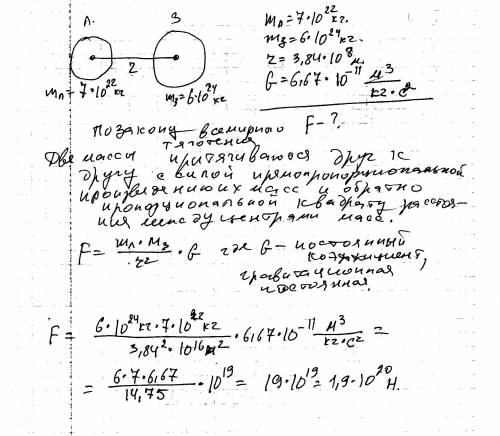 Л. З
mл = 7·10²² кг.
mз = 6·10²⁴ кг.
r = 3,84·10⁸ м.
G = 6,67·10⁻¹¹ м³/кг·с²
r
mл = 7·10²² кг
mз = 6·10²⁴ кг
F – ?
По закону всемирного
тяготения
Две массы притягиваются друг к
другу с силой прямопропорциональной
произведению их масс и обратно
пропорциональной квадрату расстоя-
ния между центрами масс.
F = mл·mз/r² · G где G – постоянный
коэффициент,
гравитационная
постоянная.
F = 6·10²⁴ кг·7·10²² кг / 3,84²·10¹⁶ м² · 6,67·10⁻¹¹ м³/кг·с² =
= 6·7·6,67/14,75 · 10¹⁹ = 19·10¹⁹ = 1,9·10²⁰ Н.